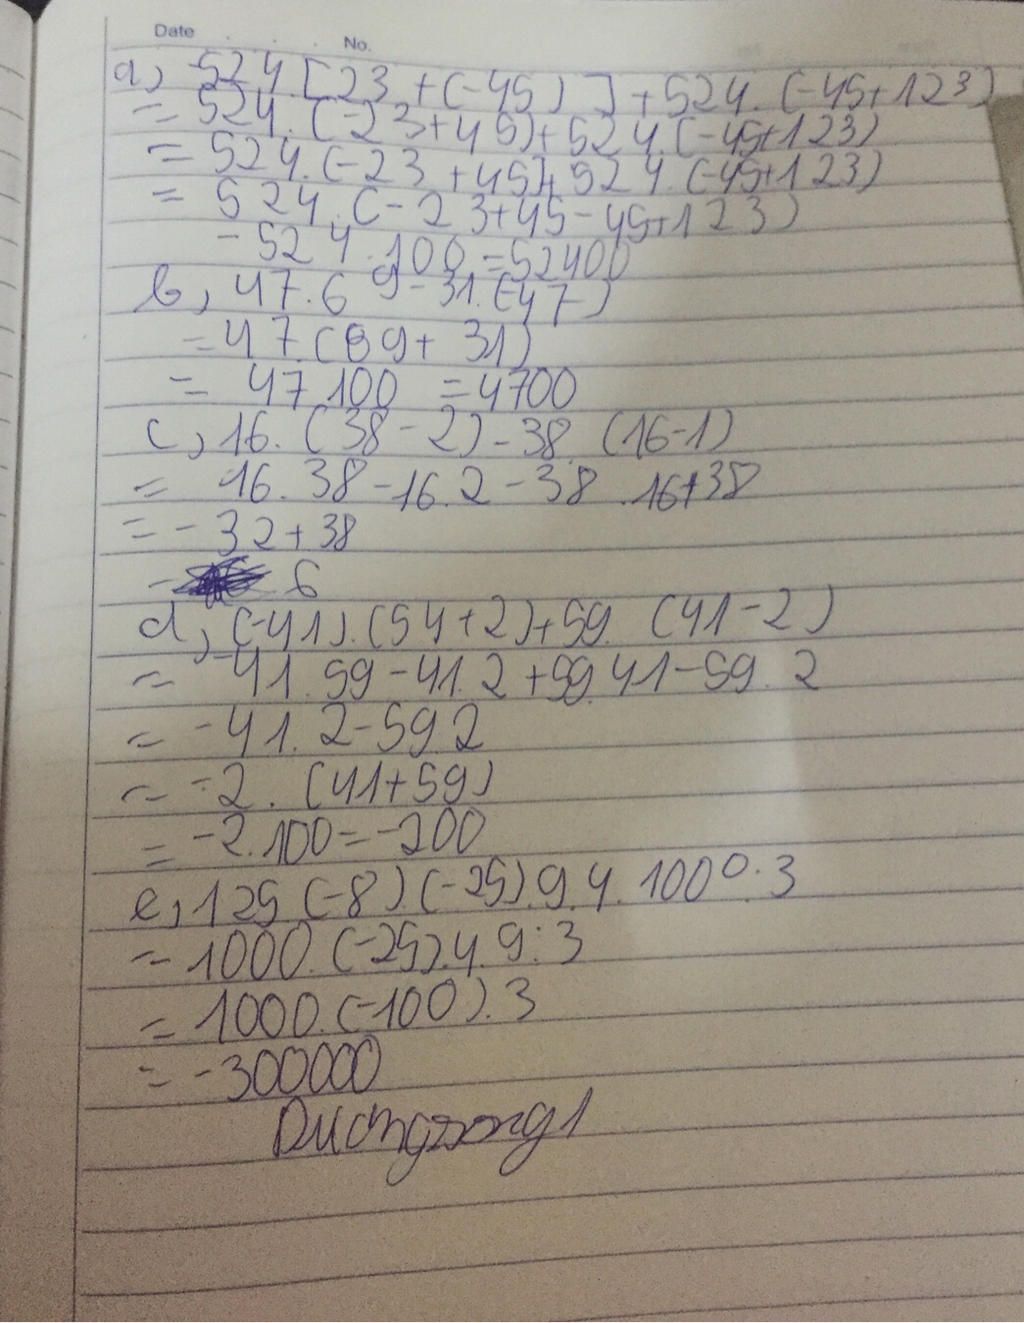 Date . . . No.
a, -524.[23+(-45)]+524.(-45+123)
= 524.(-23+45)+524.(-45+123)
= 524.(-23+45)+524.(-45+123)
= 524.(-23+45-45+123)
- 524.100 = 52400
b, 47.69-31.(-47)
= 47.(69+31)
= 47.100 = 4700
c, 16.(38-2)-38.(16-1)
= 16.38-16.2-38.16+38
= -32+38
- 6
d, (-41).(54+2)+59.(41-2)
= -41.59-41.2+59.41-59.2
= -41.2-59.2
= -2.(41+59)
= -2.100=-200
e, 125.(-8).(-25).9.4.1000.3
= 1000.(-25).4.9:3
= 1000.(-100).3
= -300000